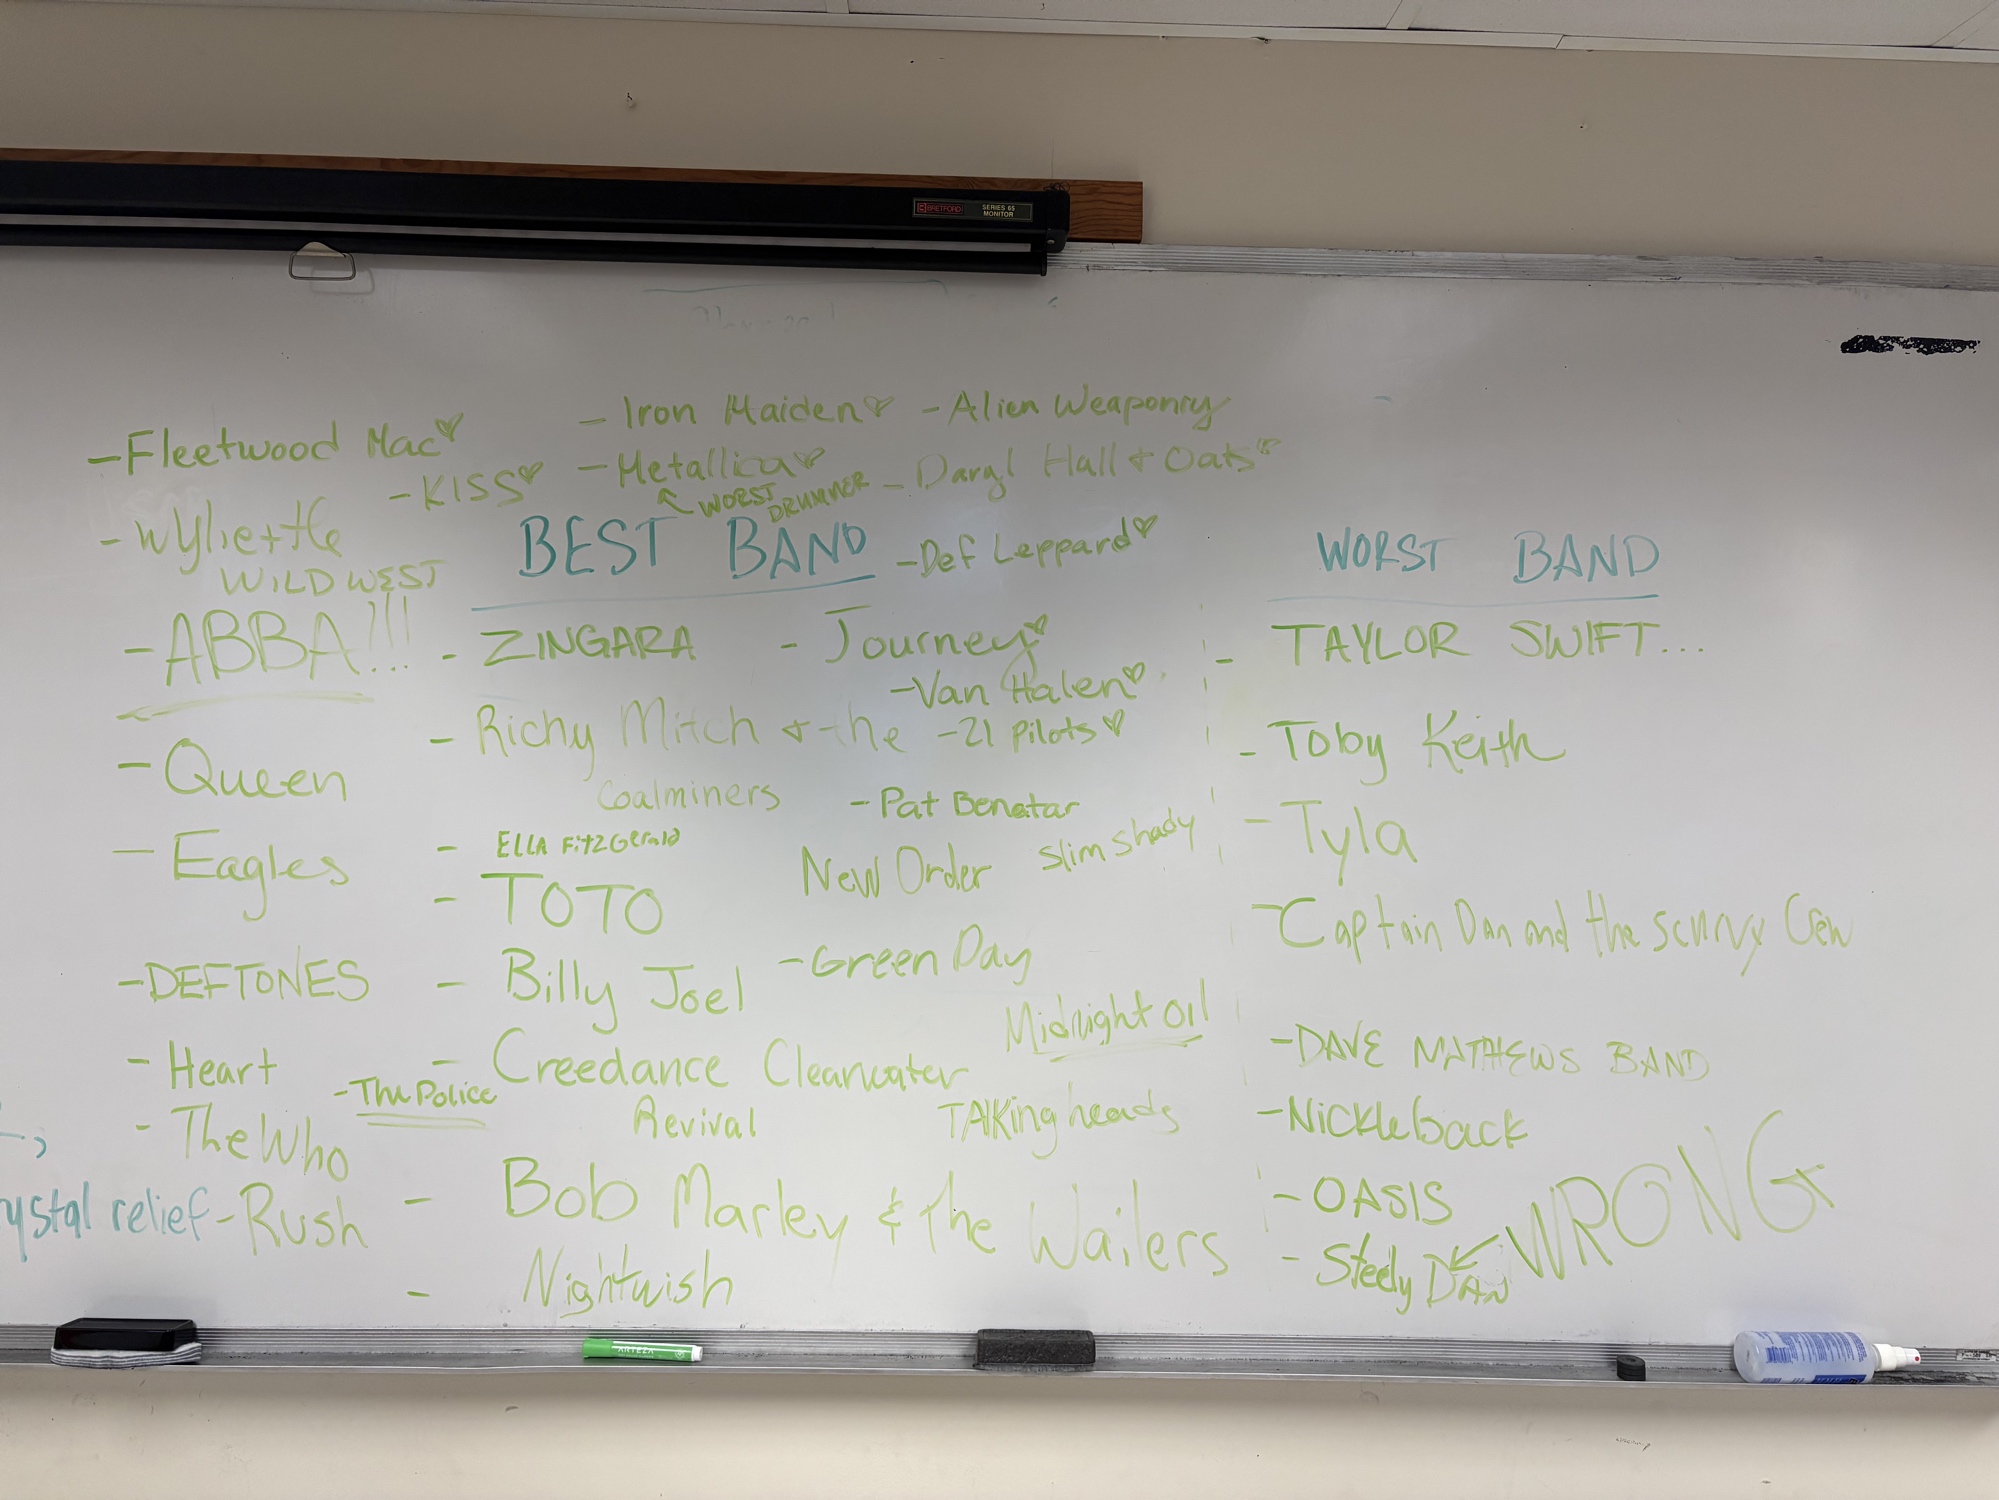 BRETFORD
SERIES 65
MONITOR
- Iron Maiden
- Alien Weaponry
- Fleetwood Mac
- KISS
- Metallica
WORST
DRUMMER
- Daryl Hall & Oats
- Wylie + the
WILD WEST
BEST BAND
- Def Leppard
WORST BAND
- ABBA!!!
- ZINGARA
- Journey
- Van Halen
- TAYLOR SWIFT...
- Queen
- Richy Mitch & the
Coalminers
- 21 Pilots
- Toby Keith
- Pat Benatar
- Eagles
- ELLA FitzGerald
New Order
Slim Shady
- Tyla
- TOTO
- Captain Dan and the scurvy Crew
- DEFTONES
- Billy Joel
- Green Day
Midnight Oil
- DAVE MATHEWS BAND
- Heart
- The Police
- Creedance Clearwater
Revival
Talking heads
- Nickleback
- The Who
- OASIS
WRONG
ystal relief
- Rush
- Bob Marley & the Wailers
- Steely DAN
- Nightwish
ARTEZA